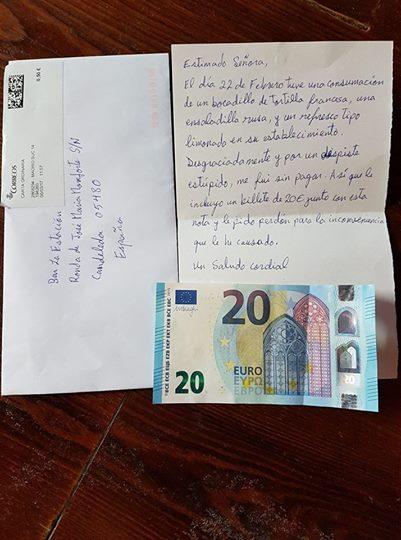 0,50 €
CORREOS
CARTA ORDINARIA
Bar La Estación
Ronda de José María Monforte S/N
Candeleda 05480
España
Estimado Señora,
El día 22 de Febrero tuve una consumación
de un bocadillo de Tortilla francesa, una
ensaladilla rusa, y un refresco tipo
limonado en su establecimiento.
Desgraciadamente y por un despiste
estupido, me fui sin pagar. Así que le
incluyo un billete de 20€ junto con esta
nota y le pido perdón para la inconveniencia
que le he causado.
Un Saludo cordial
20
20
EURO
ΕΥΡΩ
ЕВРО
20